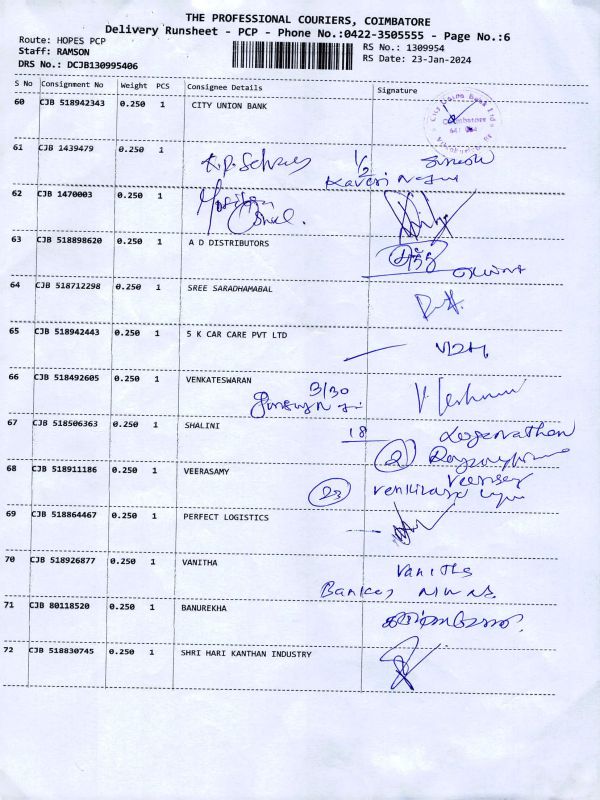 THE PROFESSIONAL COURIERS, COIMBATORE
Delivery Runsheet - PCP - Phone No.:0422-3505555 - Page No.:6
Route: HOPES PCP
Staff: RAMSON
DRS No.: DCJB130995406
RS No.: 1309954
RS Date: 23-Jan-2024
S No Consignment No Weight PCS Consignee Details Signature
60 CJB 518942343 0.250 1 CITY UNION BANK
Coimbatore
61 CJB 1439479 0.250 1
1/2 Suresh
62 CJB 1470003 0.250 1
63 CJB 518898620 0.250 1 A D DISTRIBUTORS
64 CJB 518712298 0.250 1 SREE SARADHAMABAL
65 CJB 518942443 0.250 1 S K CAR CARE PVT LTD
66 CJB 518492605 0.250 1 VENKATESWARAN
3/30
67 CJB 518506363 0.250 1 SHALINI
18
2
68 CJB 518911186 0.250 1 VEERASAMY
23
69 CJB 518864467 0.250 1 PERFECT LOGISTICS
70 CJB 518926877 0.250 1 VANITHA
Vanitha
71 CJB 80118520 0.250 1 BANUREKHA
72 CJB 518830745 0.250 1 SHRI HARI KANTHAN INDUSTRY